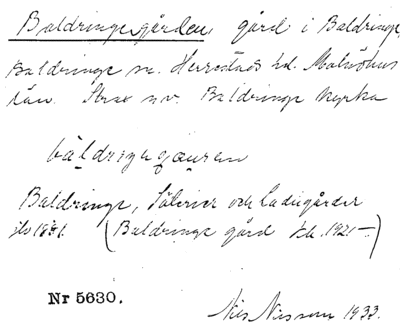 Baldringegården, gård i Baldringe,
Baldringe sn. Herrestads hd. Malmöhus
län. Strax n.v. Baldringe kyrka
Baldringe, Säterier och Ladugårder
(Baldringe gård 1921–)
Nr 5630.
Nils Nilsson 1933.